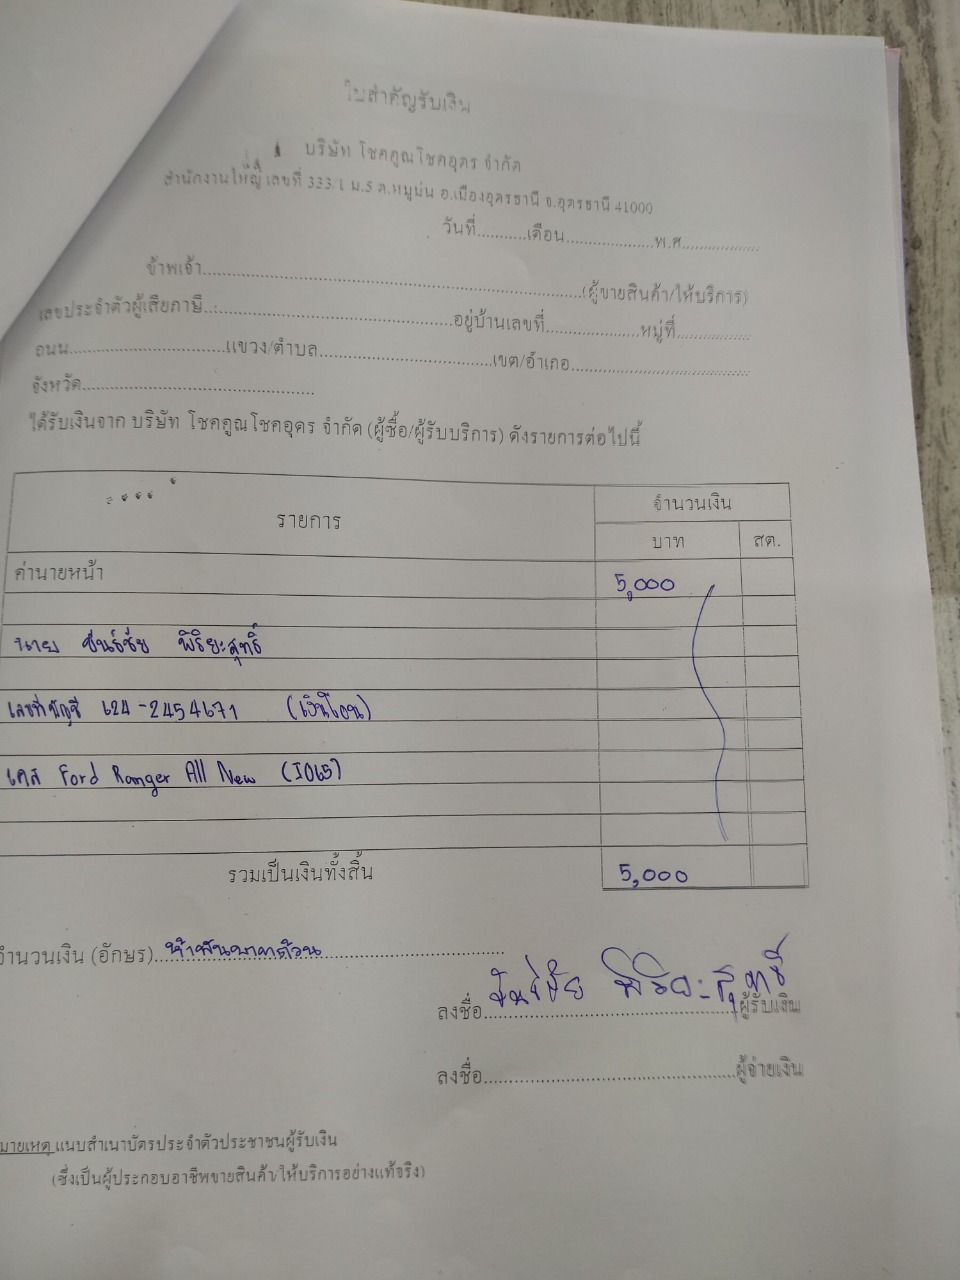 ใบสำคัญรับเงิน
บริษัท โชคคูณโชคอุดร จำกัด
สำนักงานใหญ่ เลขที่ 333/1 ม.5 ต.หมูม่น อ.เมืองอุดรธานี จ.อุดรธานี 41000
วันที่...........เดือน...................พ.ศ.................
ข้าพเจ้า................................................................................(ผู้ขายสินค้า/ให้บริการ)
เลขประจำตัวผู้เสียภาษี.....................................................อยู่บ้านเลขที่....................หมู่ที่................
ถนน.................................แขวง/ตำบล.....................................เขต/อำเภอ......................................
จังหวัด.................................................
ได้รับเงินจาก บริษัท โชคคูณโชคอุดร จำกัด (ผู้ซื้อ/ผู้รับบริการ) ดังรายการต่อไปนี้
รายการ จำนวนเงิน
บาท สต.
ค่านายหน้า 5,000
นาย ขันธ์ชัย พิริยะสุทธิ์
เลขที่บัญชี 624-2454671 (เงินโอน)
เคส Ford Ranger All New (JO65)
รวมเป็นเงินทั้งสิ้น 5,000
จำนวนเงิน (อักษร)....ห้าพันบาทถ้วน
ลงชื่อ ขันธ์ชัย พิริยะสุทธิ์ ผู้รับเงิน
ลงชื่อ..................................................ผู้จ่ายเงิน
มายเหตุ แนบสำเนาบัตรประจำตัวประชาชนผู้รับเงิน
(ซึ่งเป็นผู้ประกอบอาชีพขายสินค้า/ให้บริการอย่างแท้จริง)